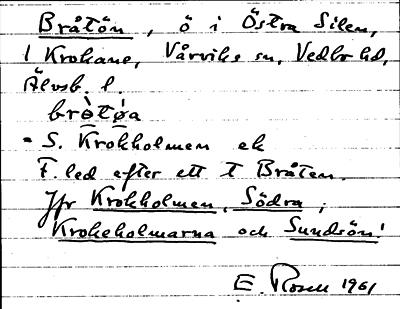 Bråtön, ö i Östra Silen,
l Krokane, Vårviks sn, Vedbo hd,
Älvsb. l.
bròtø̀a
= S. Krokholmen ek
F. led efter ett t Bråten.
Jfr Krokholmen, Södra;
Krokeholmarna och Sundsön!
E. Rosell 1961